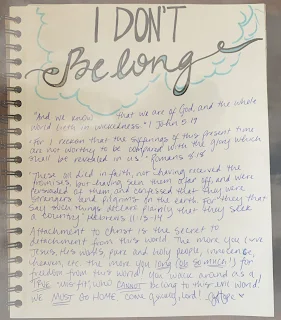 I DON'T
Belong
"And we know that we are of God, and the whole
world lieth in wickedness" 1 John 5:19
"For I reckon that the sufferings of this present time
are not worthy to be compared with the glory which
shall be revealed in us." Romans 8:18
"These all died in faith, not having received the
promises, but having seen them afar off, and were
persuaded of them and confessed that they were
strangers and pilgrims on the earth. For they that
say such things declare plainly that they seek
a country" Hebrews 11:13-14
Attachment to Christ is the secret to
detachment from this world. The more you love
Jesus, His words, pure and holy people, innocence,
heaven, etc the more you long (oh so much!) for
freedom from this world! You walk around as a
TRUE "misfit" who CANNOT belong to this evil world!
WE MUST GO HOME. Come quickly, Lord!